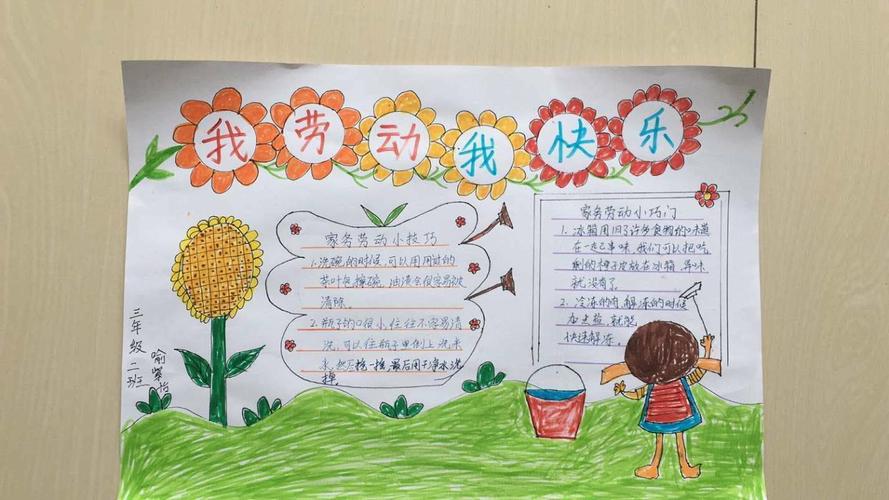 我劳动我快乐
家务劳动小技巧
1.洗碗的时候,可以用用过的
茶叶包擦碗,油渍会很容易被
清除。
2.瓶子的口很小,往往不容易清
洗,可以往瓶子里倒上洗米
水,然后摇一摇,最后用干净水洗
掉。
家务劳动小巧门
1.冰箱用旧了许多食物的味道
在一起
我们可以把吃
剩的
皮放在冰箱,异味
就没有了。
2.冷冻的肉,解冻的时候
就能
快速解冻。
三年级二班
喻
怡